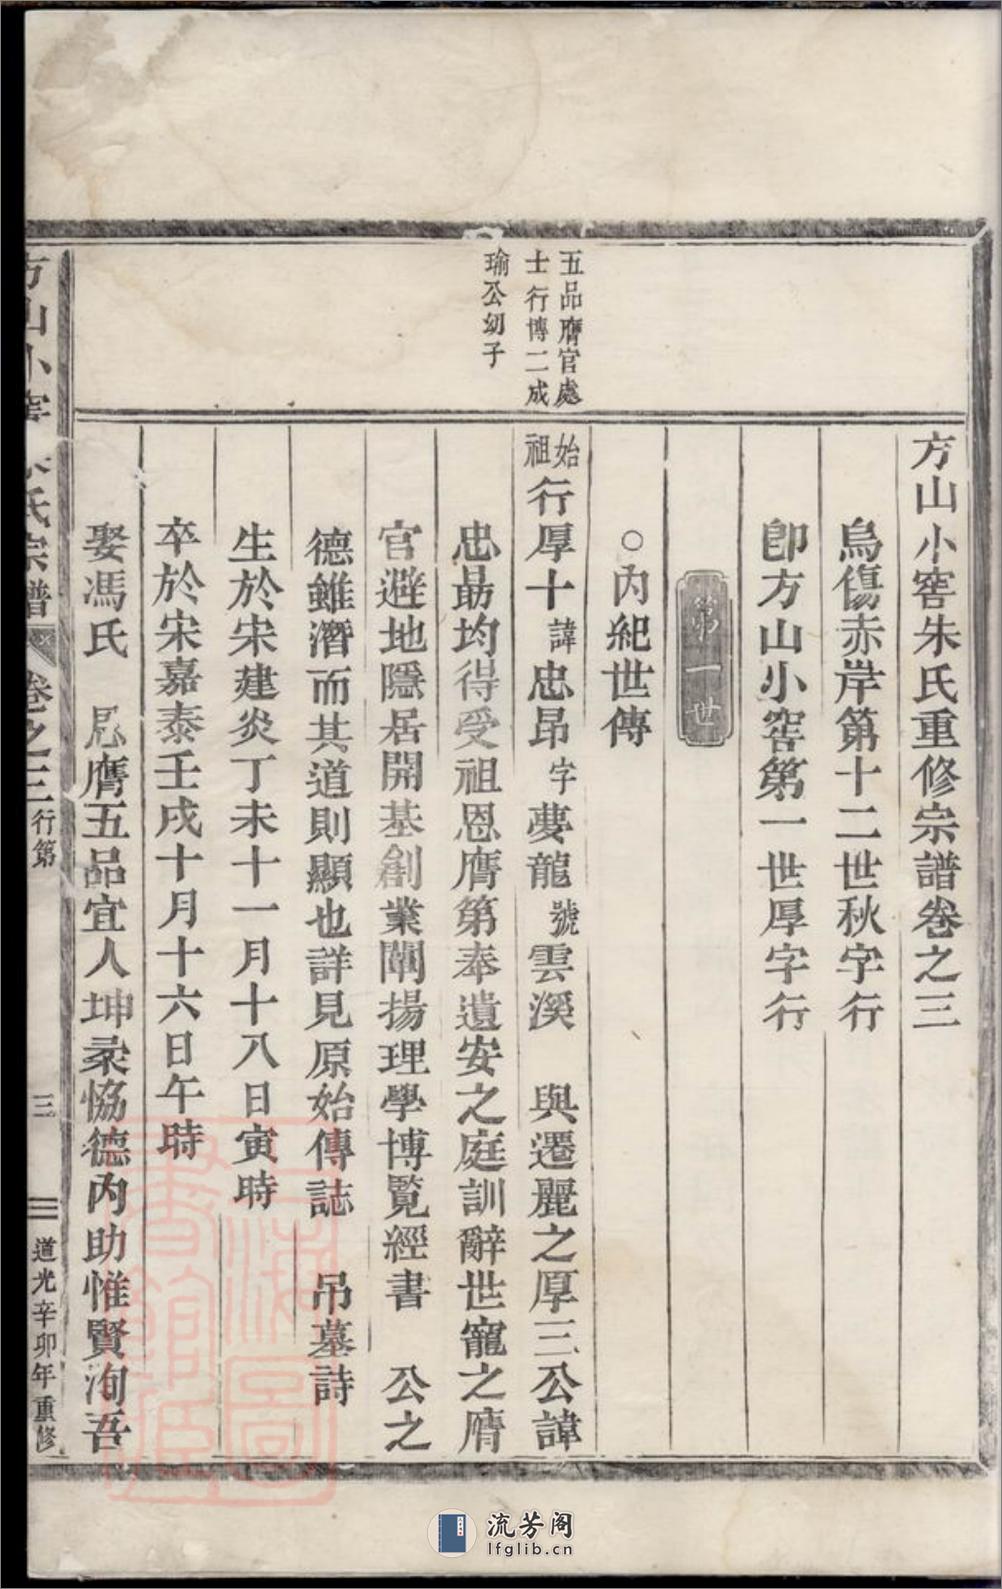 方山小窖朱氏重修宗譜卷之三
烏傷赤岸第十二世秋字行
卽方山小窖第一世厚字行
第一世
○內紀世傳
五品膺官處
士行博二成
瑜公幼子
始祖行厚十諱忠昂字夢龍號雲溪 與遷麗之厚三公諱
忠勗均得受祖恩膺第奉遺安之庭訓辭世寵之膺
官避地隱居開基創業闡揚理學博覽經書 公之
德雖潛而其道則顯也詳見原始傳誌 吊墓詩
生於宋建炎丁未十一月十八日寅時
卒於宋嘉泰壬戌十月十六日午時
娶馮氏 膺五品宜人坤彖恊德內助惟賢洵吾
方山小窖朱氏宗譜 卷之三 行第 三 道光辛卯年重修
上海圖書館藏
流芳阁
lfglib.cn